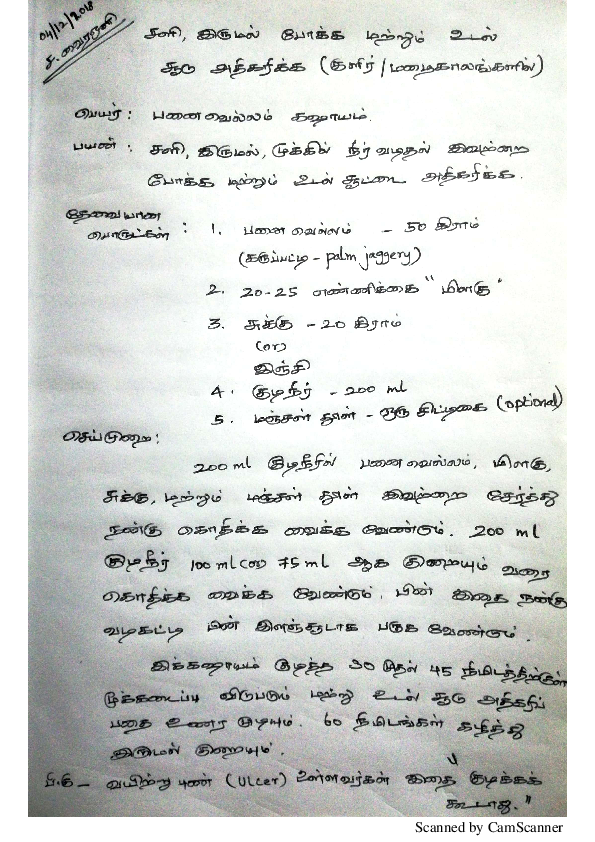 04/12/2018
சளி, இருமல் போக்க மற்றும் உடல்
சூடு அதிகரிக்க (குளிர்/மழைகாலங்களில்)
பெயர் : பனைவெல்லம் கஷாயம்.
பயன் : சளி, இருமல், மூக்கில் நீர் வடிதல் இவற்றை
போக்க மற்றும் உடல் சூட்டை அதிகரிக்க.
தேவையான
பொருட்கள் : 1. பனை வெல்லம் - 50 கிராம்
(கருப்பட்டி - palm jaggery)
2. 20-25 எண்ணிக்கை "மிளகு"
3. சுக்கு - 20 கிராம்
(or)
இஞ்சி
4. குடிநீர் - 200 ml
5. மஞ்சள் தூள் - ஒரு சிட்டிகை (optional)
செய்முறை :
200 ml குடிநீரில் பனை வெல்லம், மிளகு,
சுக்கு, மற்றும் மஞ்சள் தூள் இவற்றை சேர்த்து
நன்கு கொதிக்க வைக்க வேண்டும். 200 ml
குடிநீர் 100 ml (or) 75 ml ஆக குறையும் வரை
கொதிக்க வைக்க வேண்டும். பின் இதை நன்கு
வடிகட்டி பின் இளஞ்சூடாக பருக வேண்டும்.
இக்கஷாயம் குடித்த 30 முதல் 45 நிமிடத்திற்குள்
மூக்கடைப்பு விடுபடும் மற்று உடல் சூடு அதிகரிப்
பதை உணர முடியும். 60 நிமிடங்கள் கழித்து
இருமல் குறையும்.
பி.கு - வயிற்று புண் (Ulcer) உள்ளவர்கள் இதை குடிக்கக்
கூடாது."
Scanned by CamScanner